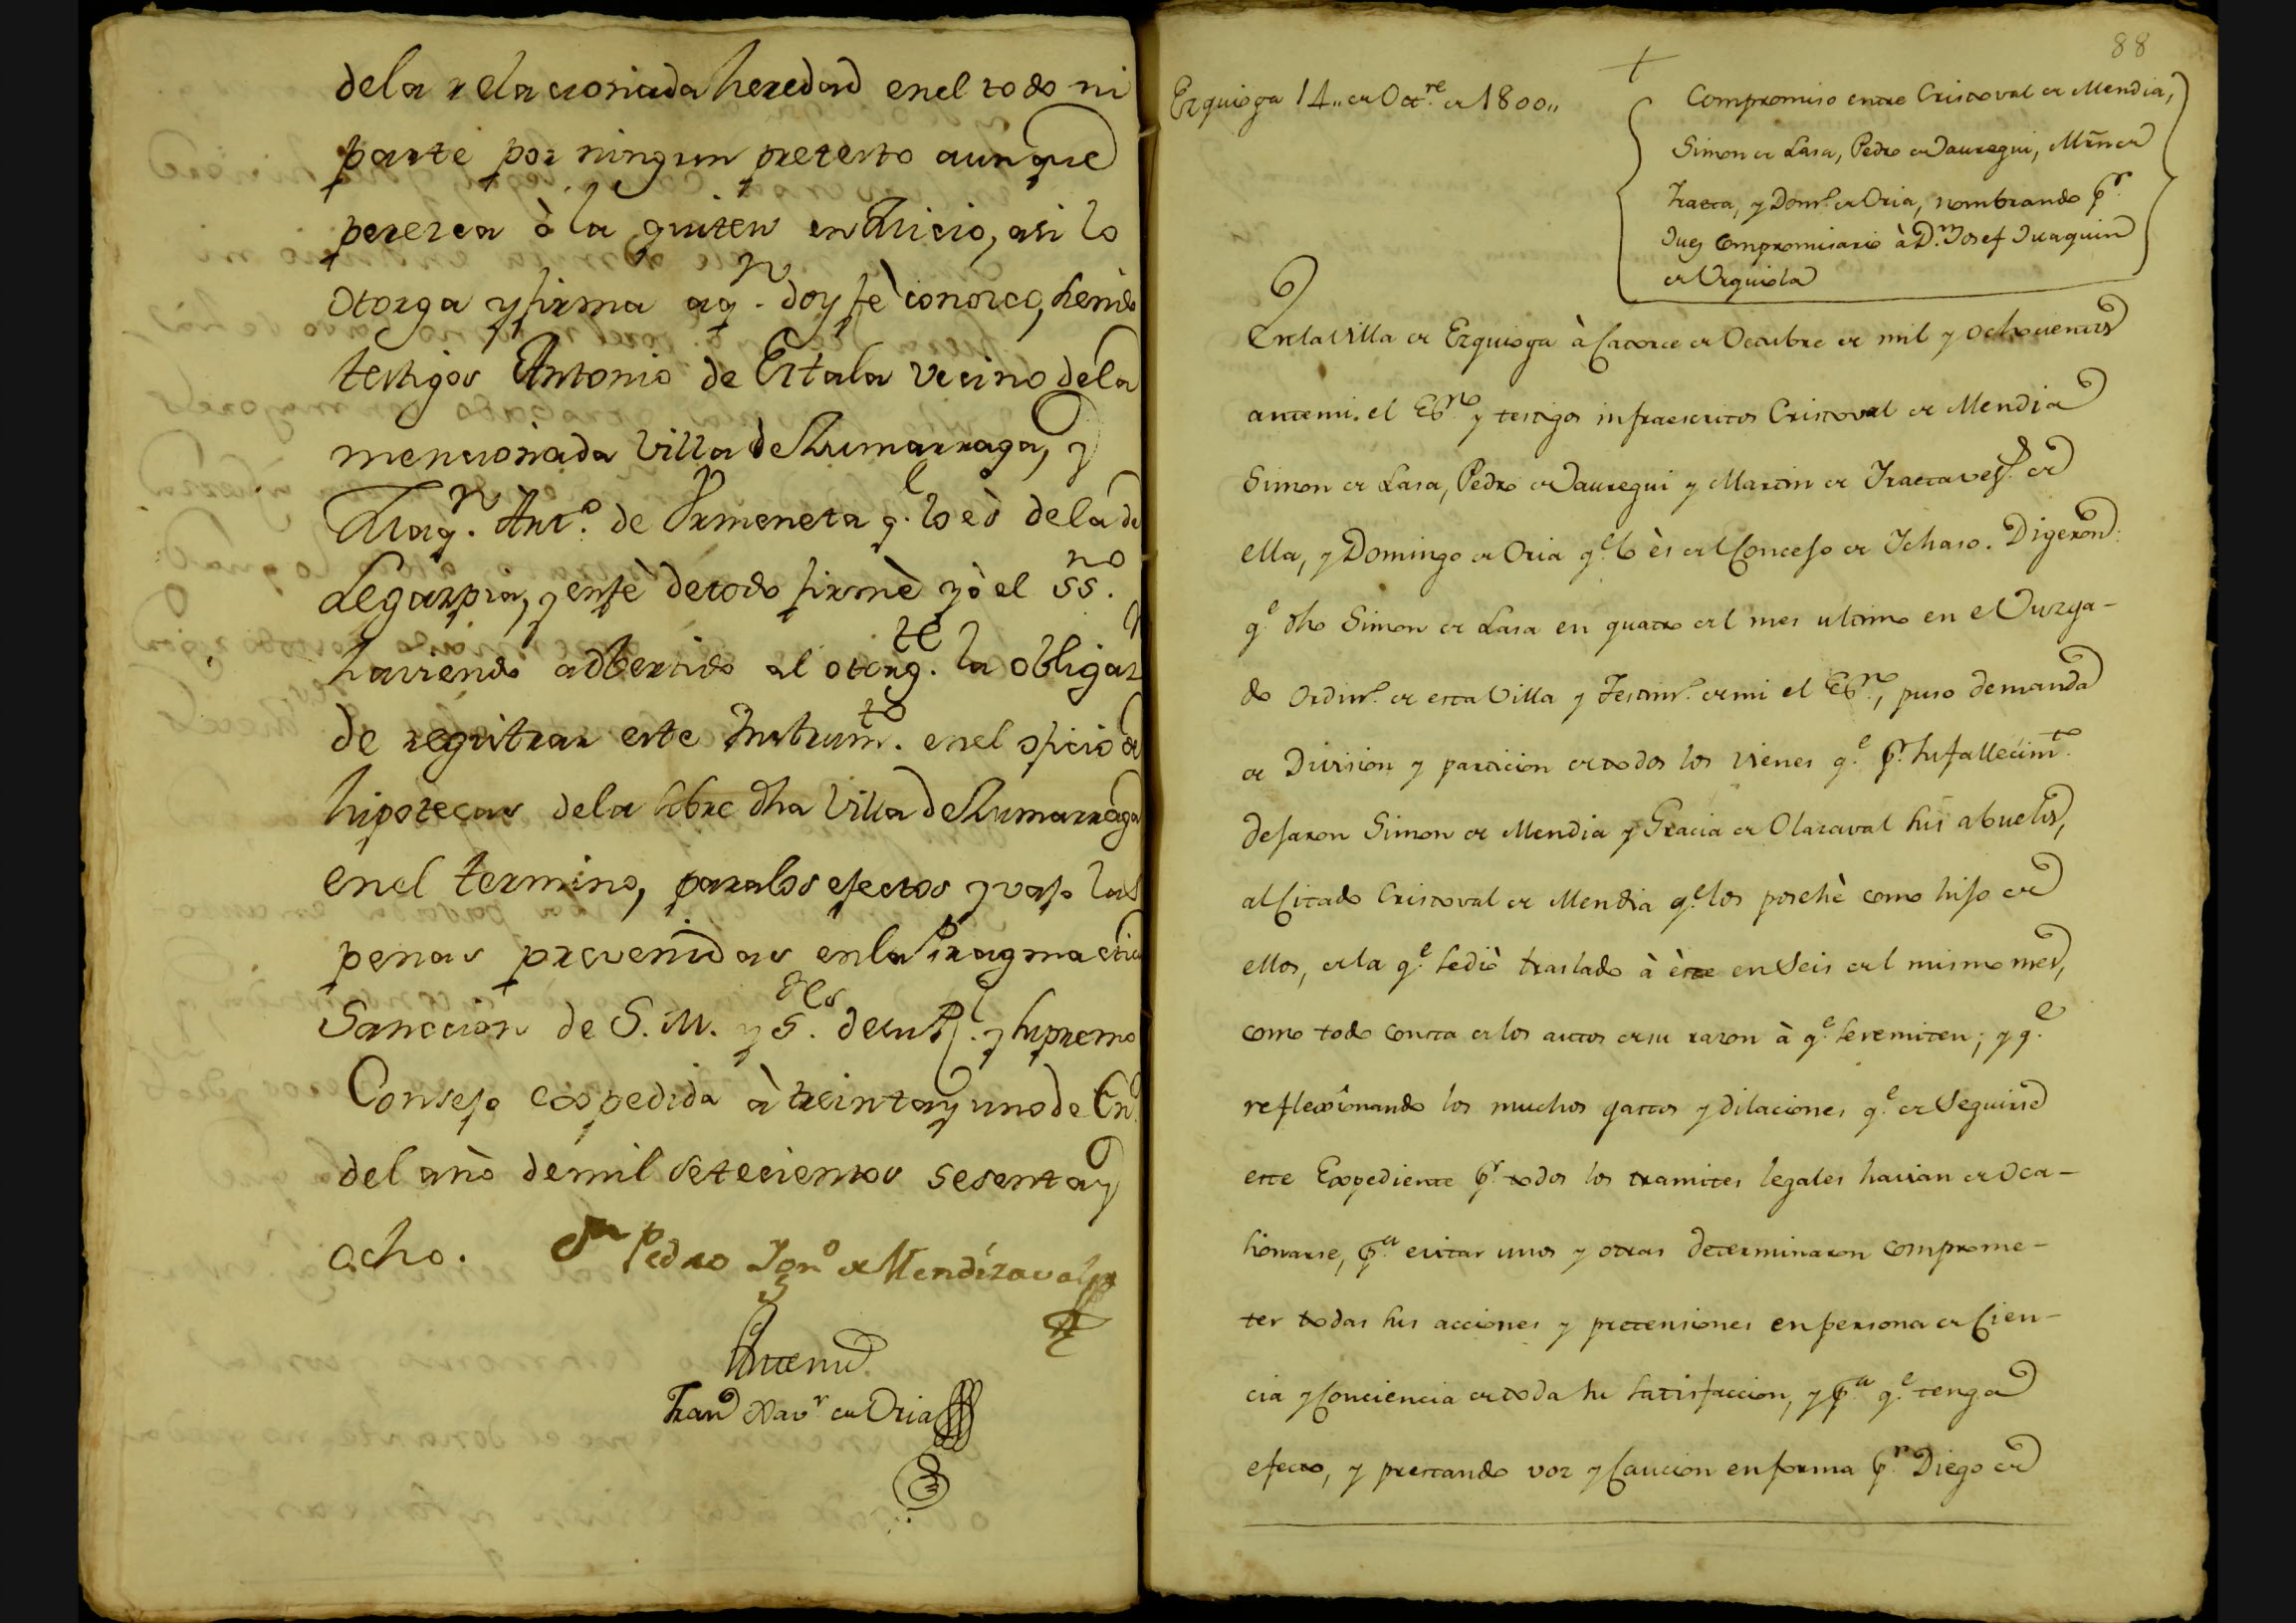 dela relacionada heredad enel todo ni
parte por ningun pretesto aunque
perezca à la quiten en Juicio, asi lo
otorga y firma aq.n doy fè conozco, siendo
testigos Antonio de Ertala vecino dela
mencionada Villa de Zumarraga, y
Juaq.n Ant.o de Urmeneta q.l lo ès dela de
Legazpia, y enfè detodo firmè yò el ss.no
haviendo adbertido al otorg.te la obligaz.n
de registrar este Instrum.to enel oficio de
hipotecas dela sobre dha Villa de Zumarraga
enel termino, paralos efectos y vajo las
penas prevenidas enla Pragmatica
Sanccion de S. M. y S.res desu R.l y supremo
Consejo expedida à treinta y uno de En.o
del año demil setecientos sesenta y
ocho. D.n Pedro Ign.o de Mendizaval
Antemi
Fran.co Xav.r de Oria
88
Ezquioga 14,, de Oct.re de 1800,,
Compromiso entre Cristoval de Mendia,
Simon de Lasa, Pedro de Jauregui, Mrn de
Iraeta, y Dom.o de Oria, nombrando p.r
Juez Compromisario à D.n Josef Juaquin
de Urquiola
Enla Villa de Ezquioga à Catorce de Octubre de mil y ochocientos
antemi el Es.no y testigos infraescritos Cristoval de Mendia
Simon de Lasa, Pedro de Jauregui y Martin de Iraeta ves.s de
ella, y Domingo de Oria q.e lo ès del Concejo de Ichaso. Digeron:
q.e dho Simon de Lasa en quatro del mes ultimo en el Juzga-
do Ordin.o de esta Villa y Testim.o de mi el Es.no, puso demanda
de Division y particion de todos los vienes q.e p.r su fallecim.to
dejaron Simon de Mendia y Gracia de Olazaval sus abuelos,
al Citado Cristoval de Mendia q.e los posehè como hijo de
ellos, de la q.e sediò traslado à èste en Seis del mismo mes,
como todo consta de los autos de su razon à q.e seremiten; y q.e
reflexionando los muchos gastos y dilaciones q.e de Seguirse
este Expediente p.r todos los tramites legales havian de oca-
sionarse, p.a evitar unos y otras determinaron comprome-
ter todas sus acciones y pretensiones en persona de Cien-
cia y Conciencia de toda su satisfaccion, y p.a q.e tenga
efecto, y prestando voz y Caucion en forma p.r Diego de